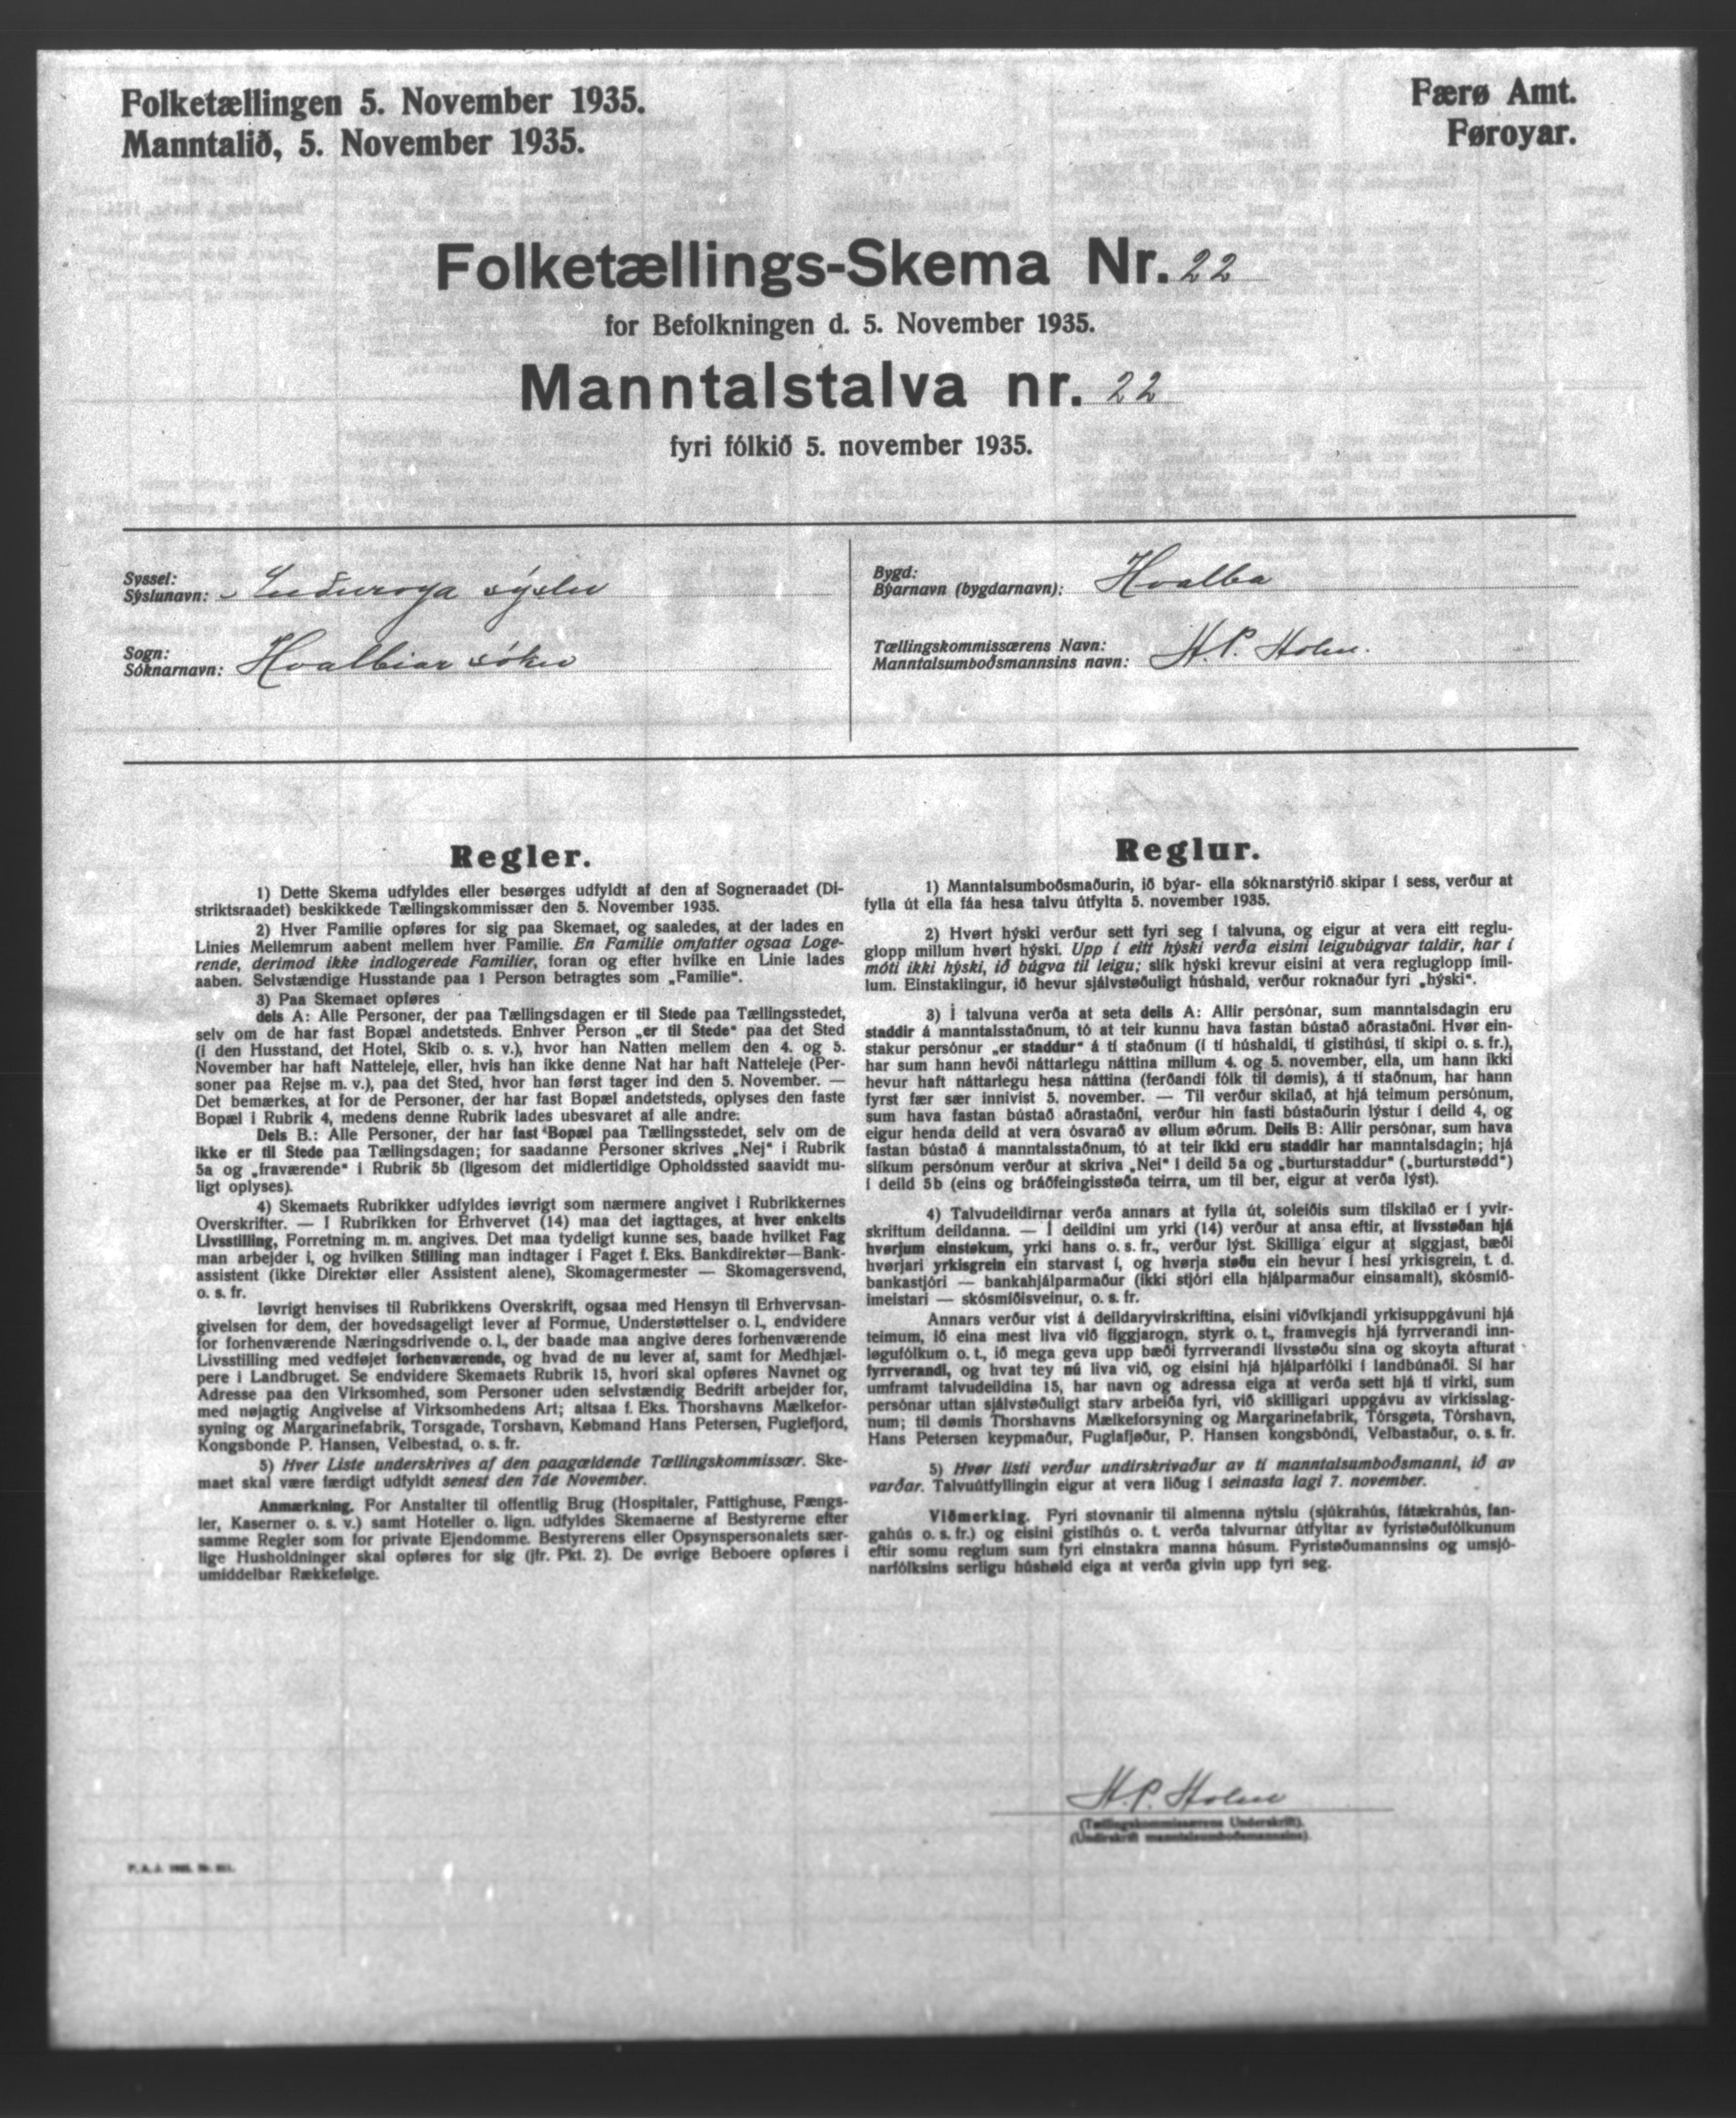 Folketællingen 5. November 1935.
Manntalið, 5. November 1935.
Færø Amt.
Føroyar.
Folketællings-Skema Nr. 22
for Befolkningen d. 5. November 1935.
Manntalstalva nr. 22
fyri fólkið 5. november 1935.
Syssel:
Sýslunavn: Suðuroya sýslu
Sogn:
Sóknarnavn: Hvalbiar sókn
Bygd:
Býarnavn (bygdarnavn): Hvalba
Tællingskommissærens Navn:
Manntalsumboðsmannsins navn: H. P. Holm.
Regler.
1) Dette Skema udfyldes eller besørges udfyldt af den af Sogneraadet (Di-
striktsraadet) beskikkede Tællingskommissær den 5. November 1935.
2) Hver Familie opføres for sig paa Skemaet, og saaledes, at der lades en
Linies Mellemrum aabent mellem hver Familie. En Familie omfatter ogsaa Loge-
rende, derimod ikke indlogerede Familier, foran og efter hvilke en Linie lades
aaben. Selvstændige Husstande paa 1 Person betragtes som „Familie“.
3) Paa Skemaet opføres
dels A: Alle Personer, der paa Tællingsdagen er til Stede paa Tællingsstedet,
selv om de har fast Bopæl andetsteds. Enhver Person „er til Stede“ paa det Sted
(i den Husstand, det Hotel, Skib o. s. v.), hvor han Natten mellem den 4. og 5.
November har haft Natteleje, eller, hvis han ikke denne Nat har haft Natteleje (Per-
soner paa Rejse m. v.), paa det Sted, hvor han først tager ind den 5. November. —
Det bemærkes, at for de Personer, der har fast Bopæl andetsteds, oplyses den faste
Bopæl i Rubrik 4, medens denne Rubrik lades ubesvaret af alle andre.
Dels B.: Alle Personer, der har fast Bopæl paa Tællingsstedet, selv om de
ikke er til Stede paa Tællingsdagen; for saadanne Personer skrives „Nej“ i Rubrik
5a og „fraværende“ i Rubrik 5b (ligesom det midlertidige Opholdssted saavidt mu-
ligt oplyses).
4) Skemaets Rubrikker udfyldes iøvrigt som nærmere angivet i Rubrikkernes
Overskrifter. — I Rubrikken for Erhvervet (14) maa det iagttages, at hver enkelts
Livsstilling, Forretning m. m. angives. Det maa tydeligt kunne ses, baade hvilket Fag
man arbejder i, og hvilken Stilling man indtager i Faget f. Eks. Bankdirektør—Bank-
assistent (ikke Direktør eller Assistent alene), Skomagermester — Skomagersvend,
o. s. fr.
Iøvrigt henvises til Rubrikkens Overskrift, ogsaa med Hensyn til Erhvervsan-
givelsen for dem, der hovedsageligt lever af Formue, Understøttelser o. l., endvidere
for forhenværende Næringsdrivende o. l., der baade maa angive deres forhenværende
Livsstilling med vedføjet forhenværende, og hvad de nu lever af, samt for Medhjæl-
pere i Landbruget. Se endvidere Skemaets Rubrik 15, hvori skal opføres Navnet og
Adresse paa den Virksomhed, som Personer uden selvstændig Bedrift arbejder for,
med nøjagtig Angivelse af Virksomhedens Art; altsaa f. Eks. Thorshavns Mælkefor-
syning og Margarinefabrik, Torsgade, Torshavn, Købmand Hans Petersen, Fuglefjord,
Kongsbonde P. Hansen, Velbestad, o. s. fr.
5) Hver Liste underskrives af den paagældende Tællingskommissær. Ske-
maet skal være færdigt udfyldt senest den 7de November.
Anmærkning. For Anstalter til offentlig Brug (Hospitaler, Fattighuse, Fængs-
ler, Kaserner o. s. v.) samt Hoteller o. lign. udfyldes Skemaerne af Bestyrerne efter
samme Regler som for private Ejendomme. Bestyrerens eller Opsynspersonalets sær-
lige Husholdninger skal opføres for sig (jfr. Pkt. 2). De øvrige Beboere opføres i
umiddelbar Rækkefølge.
Reglur.
1) Manntalsumboðsmaðurin, ið býar- ella sóknarstýrið skipar í sess, verður at
fylla út ella fáa hesa talvu útfylta 5. november 1935.
2) Hvørt hýski verður sett fyri seg í talvuna, og eigur at vera eitt reglu-
glopp millum hvørt hýski. Upp í eitt hýski verða eisini leigubúgvar taldir, har í
móti ikki hýski, ið búgva til leigu; slík hýski krevur eisini at vera regluglopp ímil-
lum. Einstaklingur, ið hevur sjálvstøðuligt húshald, verður roknaður fyri „hýski“.
3) Í talvuna verða at seta deils A: Allir persónar, sum manntalsdagin eru
staddir á manntalsstaðnum, tó at teir kunnu hava fastan bústað aðrastaðni. Hvør ein-
stakur persónur „er staddur“ á tí staðnum (í tí húshaldi, tí gistihúsi, tí skipi o. s. fr.),
har sum hann hevði náttarlegu náttina millum 4. og 5. november, ella, um hann ikki
hevur haft náttarlegu hesa náttina (ferðandi fólk til dømis), á tí staðnum, har hann
fyrst fær sær innivist 5. november. — Til verður skilað, at hjá teimum persónum,
sum hava fastan bústað aðrastaðni, verður hin fasti bústaðurin lýstur í deild 4, og
eigur henda deild at vera ósvarað av øllum øðrum. Deils B: Allir persónar, sum hava
fastan bústað á manntalsstaðnum, tó at teir ikki eru staddir har manntalsdagin; hjá
slíkum persónum verður at skriva „Nei“ í deild 5a og „burturstaddur“ („burturstødd“)
í deild 5b (eins og bráðfeingisstøða teirra, um til ber, eigur at verða lýst).
4) Talvudeildirnar verða annars at fylla út, soleiðis sum tilskilað er í yvir-
skriftum deildanna. — Í deildini um yrki (14) verður at ansa eftir, at livsstøðan hjá
hvørjum einstøkum, yrki hans o. s. fr., verður lýst. Skilliga eigur at siggjast, bæði
hvørjari yrkisgrein ein starvast í, og hvørja støðu ein hevur í hesi yrkisgrein, t. d.
bankastjóri — bankahjálparmaður (ikki stjóri ella hjálparmaður einsamalt), skósmið-
imeistari — skósmiðisveinur, o. s. fr.
Annars verður víst á deildaryvirskriftina, eisini viðvíkjandi yrkisuppgávuni hjá
teimum, ið eina mest liva við figgjarogn, styrk o. t., framvegis hjá fyrrverandi inn-
løgufólkum o. t., ið mega geva upp bæði fyrrverandi livsstøðu sína og skoyta afturat
fyrrverandi, og hvat tey nú liva við, og eisini hjá hjálparfólki í landbúnaði. Sí har
umframt talvudeildina 15, har navn og adressa eiga at verða sett hjá tí virki, sum
persónar uttan sjálvstøðuligt starv arbeiða fyri, við skilligari uppgávu av virkisslag-
num; til dømis Thorshavns Mælkeforsyning og Margarinefabrik, Tórsgøta, Tórshavn,
Hans Petersen keypmaður, Fuglafjøður, P. Hansen kongsbóndi, Velbastaður, o. s. fr.
5) Hvør listi verður undirskrivaður av tí manntalsumboðsmanni, ið av
varðar. Talvuútfyllingin eigur at vera liðug í seinasta lagi 7. november.
Viðmerking. Fyri stovnanir til almenna nýtslu (sjúkrahús, fátækrahús, fan-
gahús o. s. fr.) og eisini gistihús o. t. verða talvurnar útfyltar av fyristøðufólkunum
eftir somu reglum sum fyri einstakra manna húsum. Fyristøðumannsins og umsjó-
narfólksins serligu húshøld eiga at verða givin upp fyri seg.
H. P. Holm
(Tællingskommissærens Underskrift).
(Undirskrift manntalsumboðsmannsins).